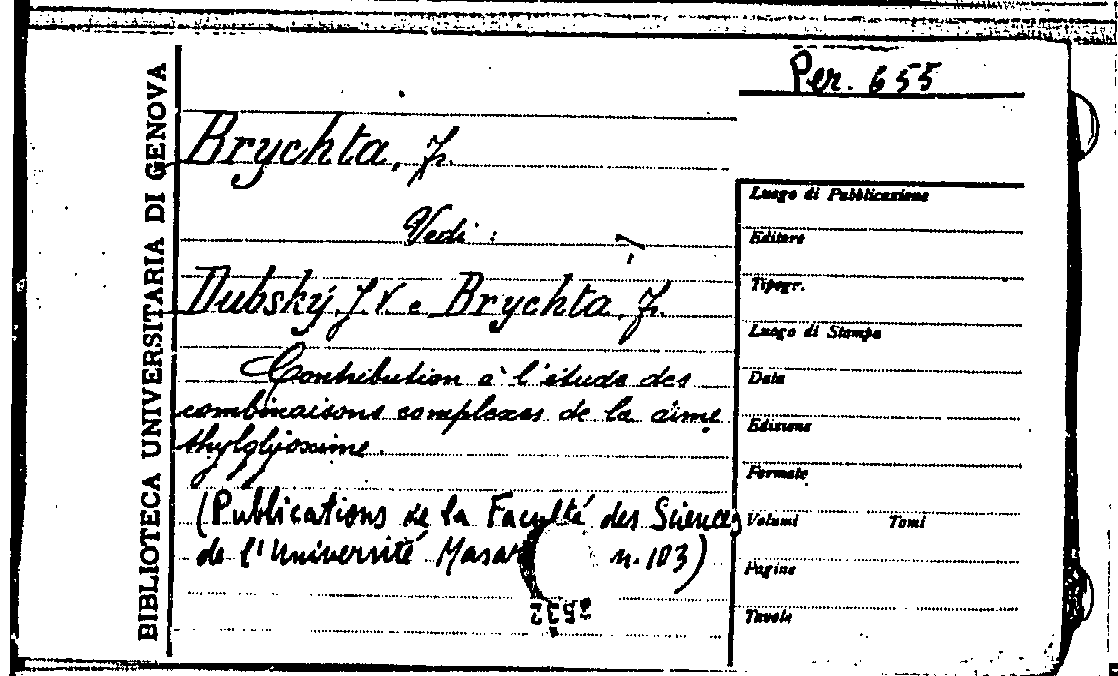 Per. 655
BIBLIOTECA UNIVERSITARIA DI GENOVA
Brychta, J.
Vedi :
Dubský, J. V. e Brychta, J.
Contribution à l'étude des
combinaisons complexes de la dime
thylglyoxime.
(Publications de la Faculté des Sciences
de l'Université Masar n. 103)
Luogo di Pubblicazione
Editore
Tipogr.
Luogo di Stampa
Data
Edizione
Formato
Volumi Tomi
Pagine
Tavole